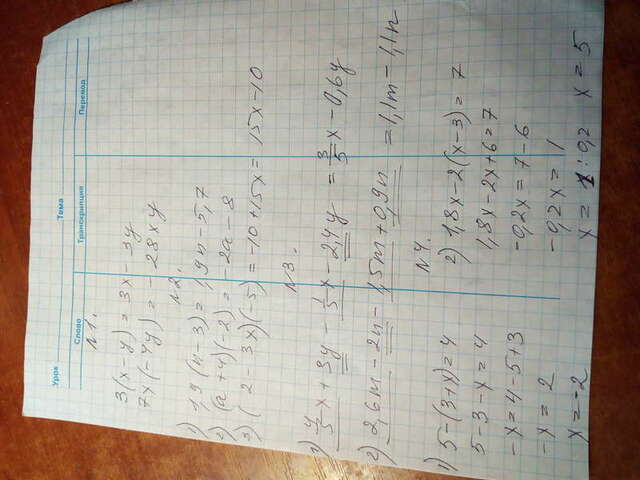 Урок Тема
Слово Транскрипция Перевод
N1.
3(x-y) = 3x - 3y
7x(-4y) = -28xy
N2.
1) 1,9(n-3) = 1,9n - 5,7
2) (a+4)(-2) = -2a - 8
3) (2-3x)(-5) = -10+15x = 15x-10
N3.
1) 4/5x + 3y - 1/5x - 2,4y = 3/5x - 0,6y
2) 2,6m - 2n - 1,5m + 0,9n = 1,1m - 1,1n
N4.
1) 5-(3+x)=4
5-3-x=4
-x=4-5+3
-x=2
x=-2
2) 1,8x-2(x-3)=7
1,8x-2x+6=7
-0,2x=7-6
-0,2x=1
x=1:0,2 x=5